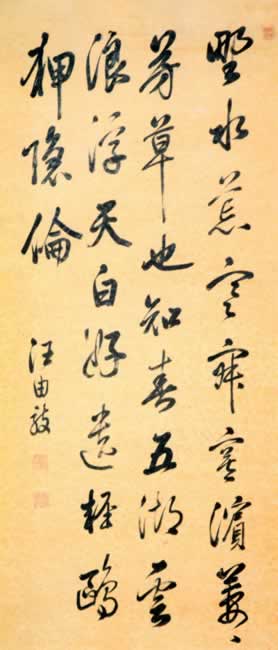 野水荒寒寂寞濱萋、
芳草也知春五湖雲
浪浮天白好遣輕鷗
狎隱倫
汪由敦